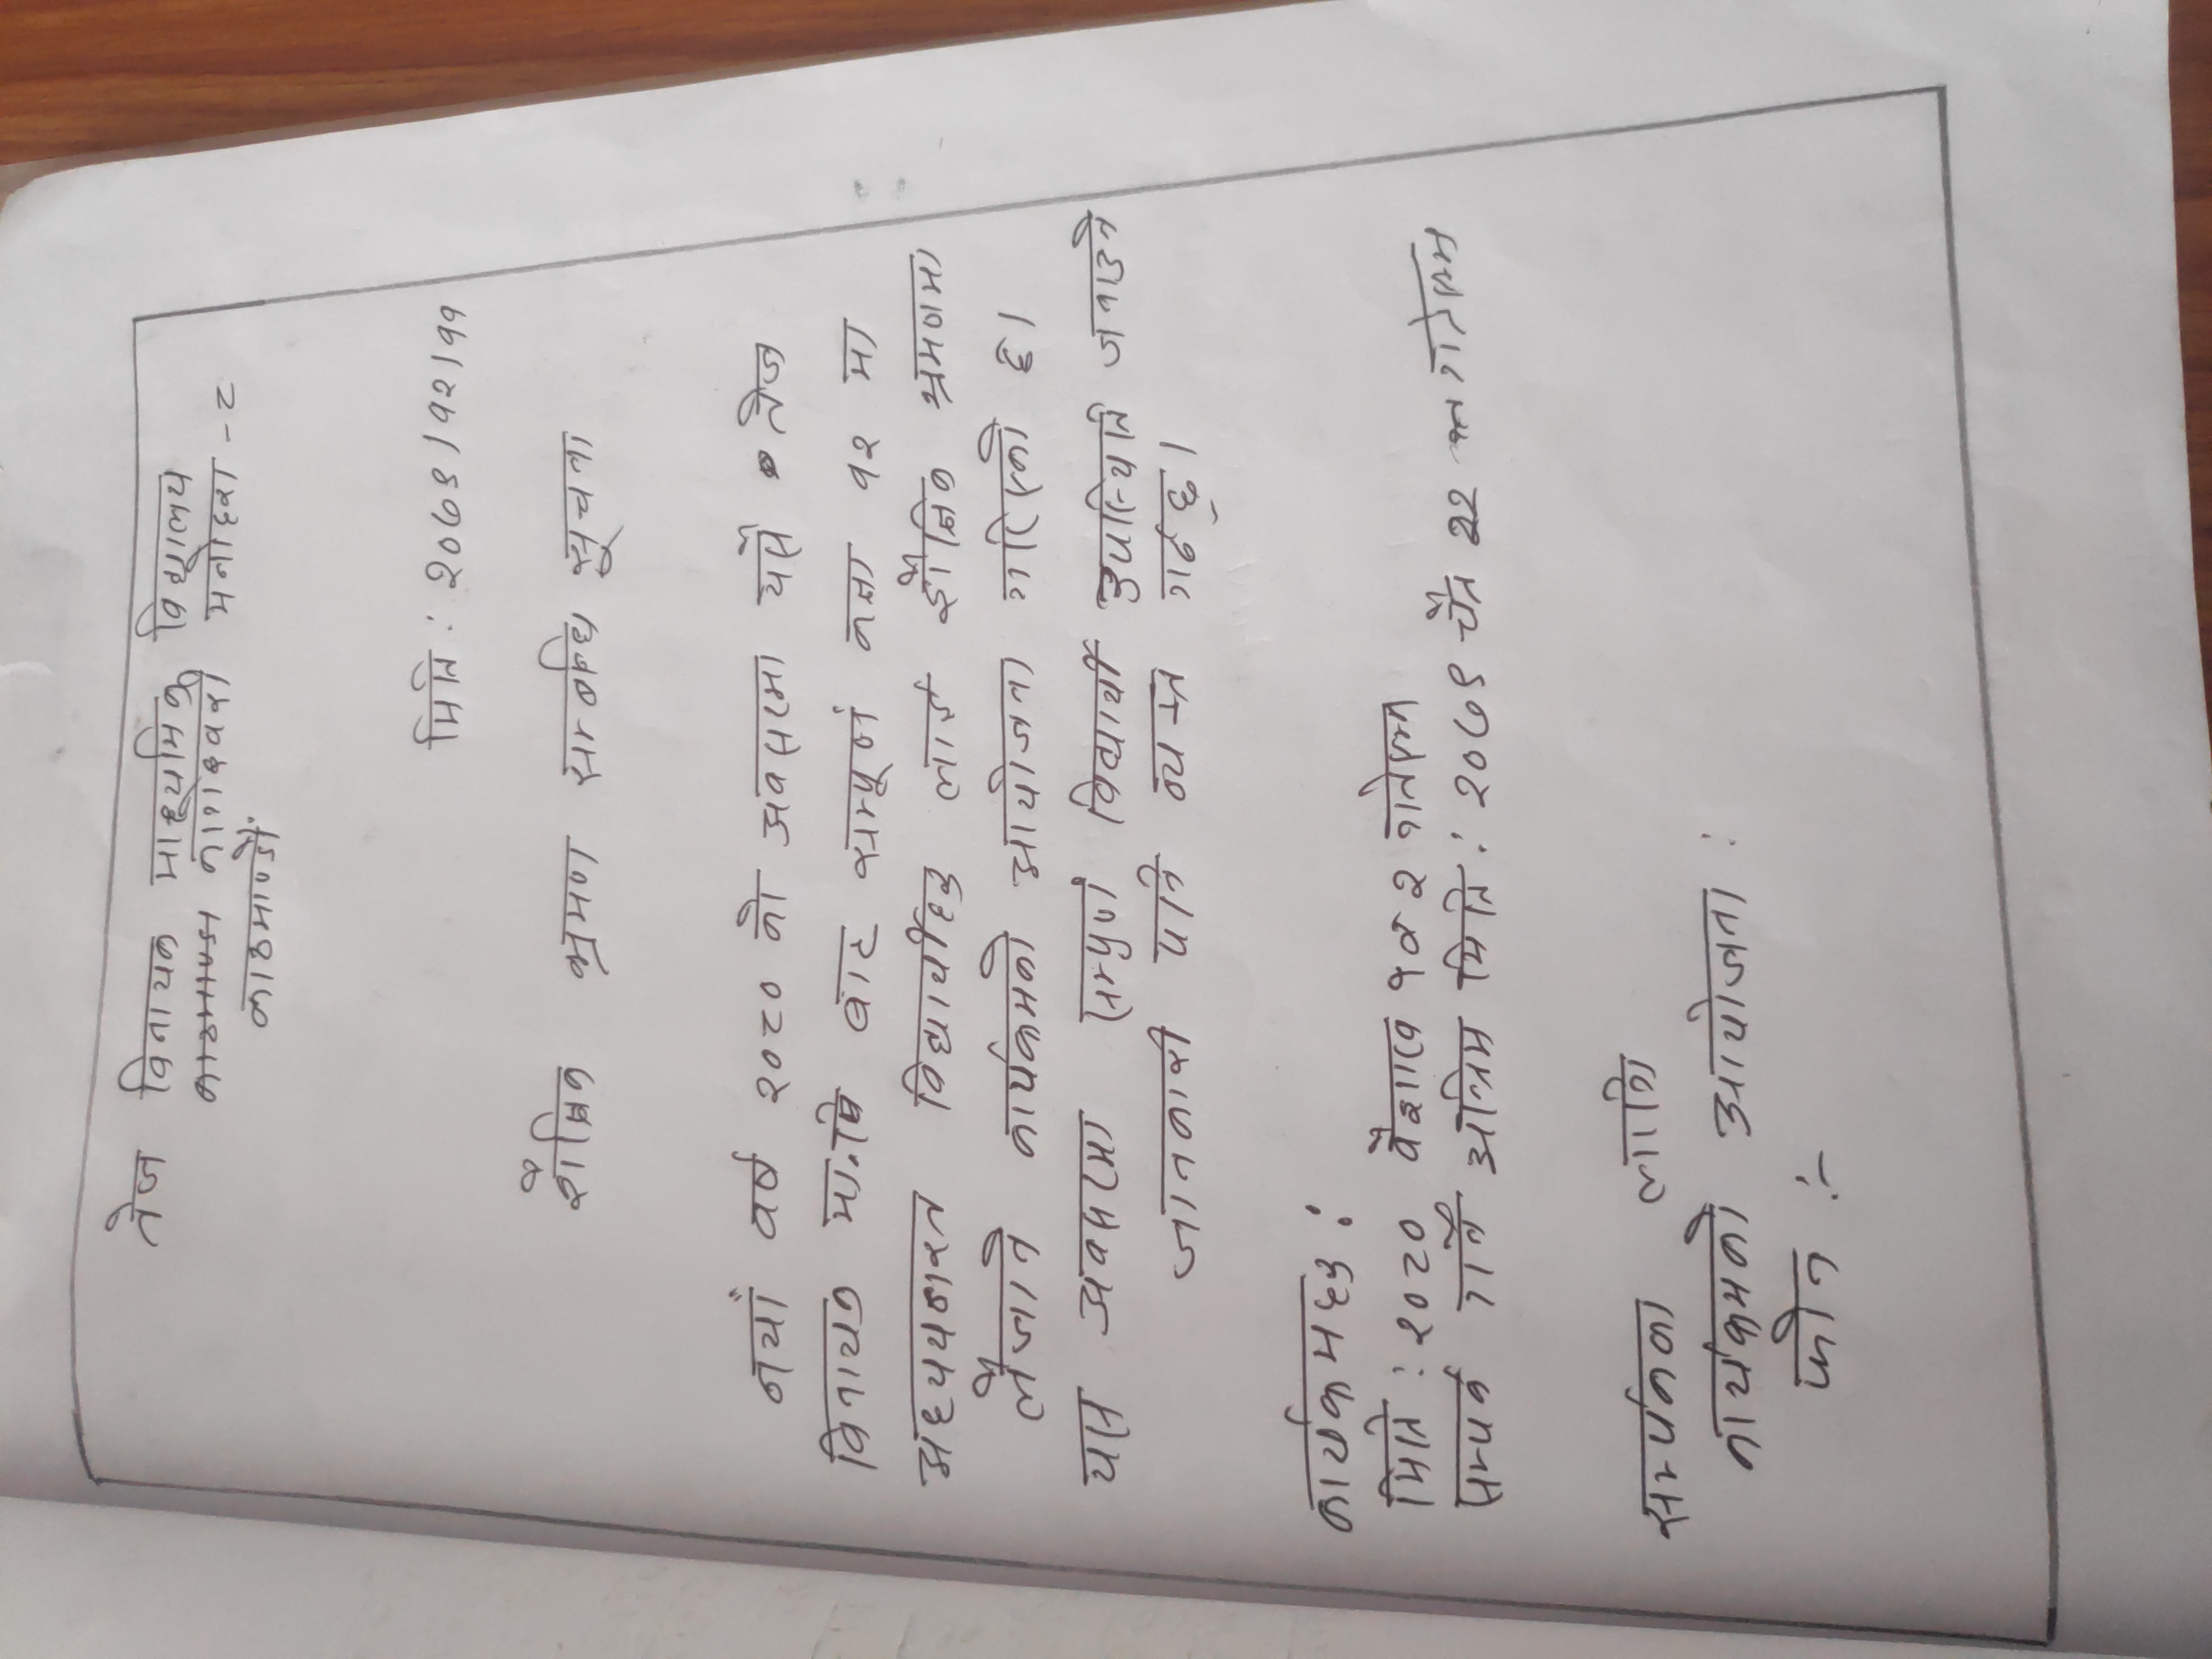 तेज विनायक माध्यमिक विद्यालय
काठमाण्डा कागेश्वरी मनोहरा - ८
काठमाण्डौं
मिति : २०७९।१२।११
शैक्षिक भ्रमण सम्बन्धि सूचना
नयाँ वर्ष २०८० को अवसरमा यसै तेज
विनायक मा.वि बाट सम्पूर्ण कक्षा १२ मा
अध्ययनारत विद्यार्थीहरु लाई शैक्षिक भ्रमणमा
लैजाने कार्यक्रमको आयोजना गरिएको छ।
यस अवसरमा सम्पुर्ण विद्यार्थी उपस्थिति जनाउने
जानकारी पनि व्यक्त गर्दछ।
कार्यक्रमहरु :
मिति : २०८० वैशाख १ र २ गतेसम्म
सम्पर्क गर्ने अन्तिम मिति : २०७९ चैत २२ गतेसम्म
सम्पर्कका लागि
कार्यक्रमको आयोजना :
फोन :-